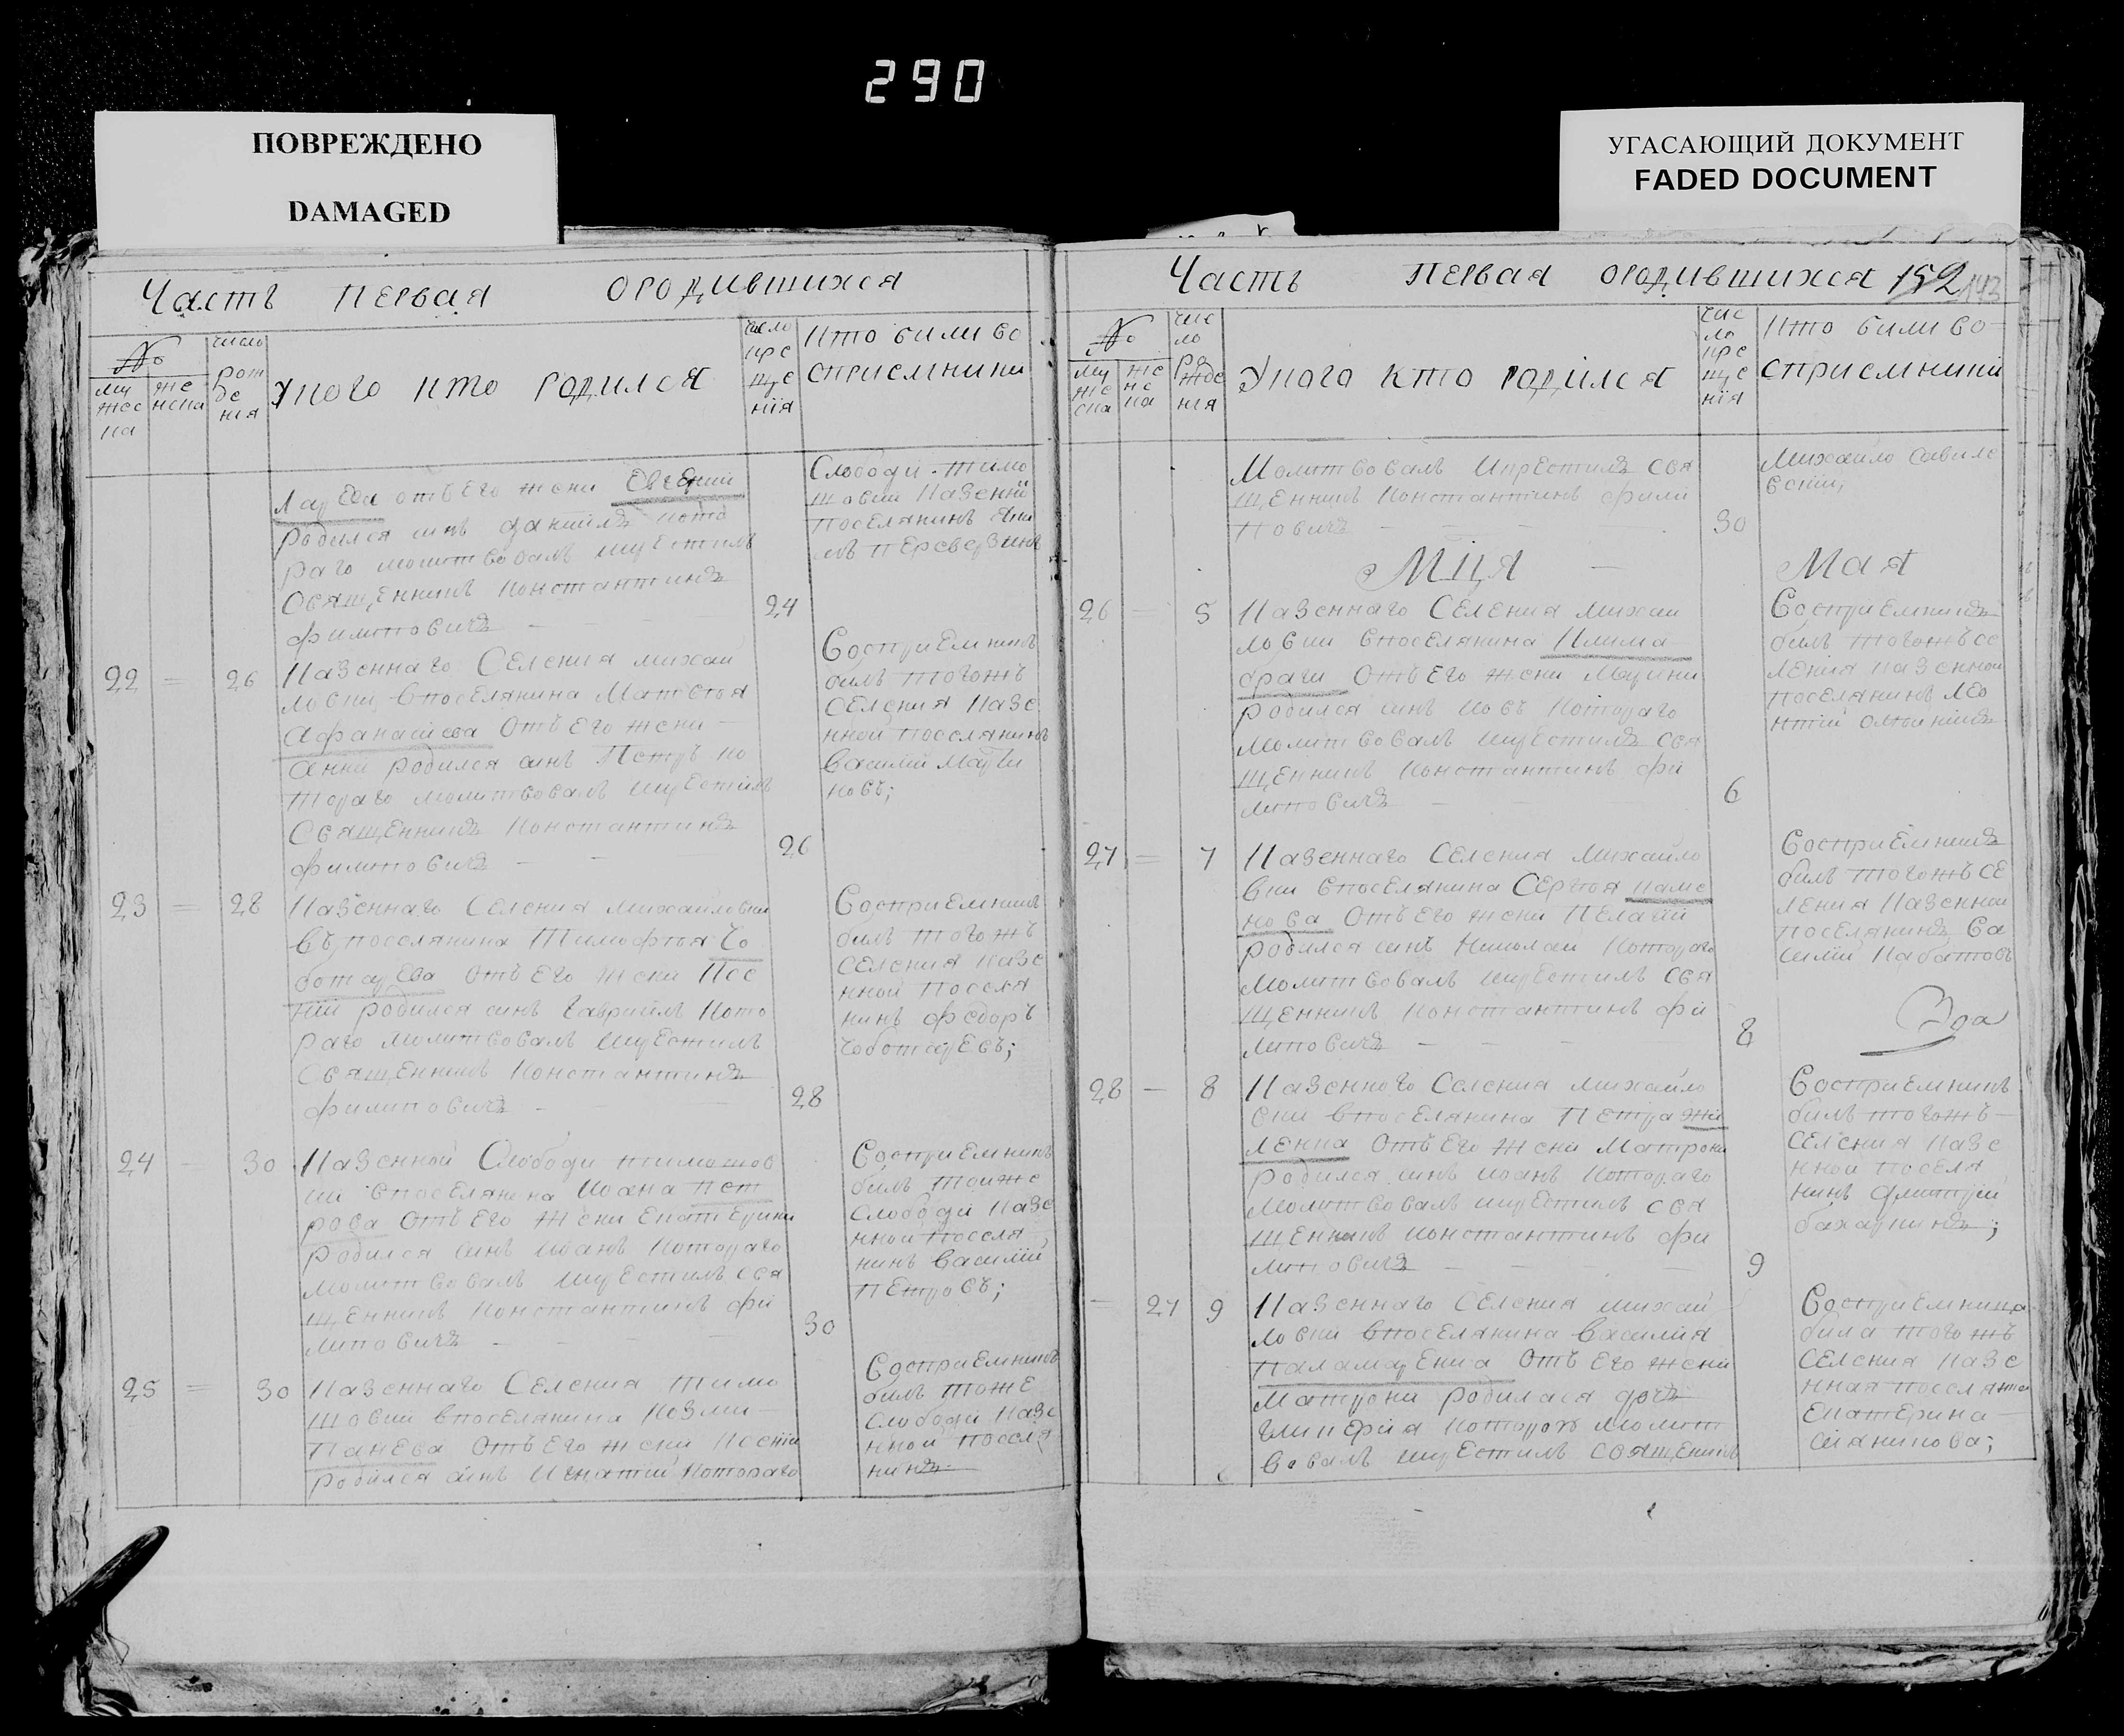 290
ПОВРЕЖДЕНО
DAMAGED
УГАСАЮЩИЙ ДОКУМЕНТ
FADED DOCUMENT
Часть первая ородившихся
№
му
жес
ка
же
нска
число
рож
де
ния
Укого кто родился
число
кре
ще
нїя
Кто били во
сприемники
Лазева отъ его жени Евгении
родился синъ даниилъ кото
раго молитвовалъ икрестилъ
Священникъ Константинъ
филиповичъ
24
Слободи тимо
шовки Казенни
поселянинъ
Переверзинъ
22 26
Казеннаго Селения михай
ловки впоселянина Матвея
Афанасиева отъ его жени
Анни родился синъ Петръ ко
тораго молитвовалъ икрестилъ
Священникъ Константинъ
филиповичъ
26
Восприемникъ
билъ тогожъ
селения Казе
нной поселянинъ
Василий Марти
новъ;
23 28
Казеннаго Селения михайловки
въ поселянина Тимофея Чо
ботарева отъ его жени Ксе
нїи родился синъ гаврийлъ Кото
раго молитвовалъ икрестилъ
Священникъ Константинъ
филиповичъ
28
Восприемникъ
билъ тогожъ
селения Казе
нной поселя
нинъ федоръ
Чоботаревъ;
24 30
Казенной Слободи тимошов
ки впоселянина Иоана Пет
рова отъ его жени Екатерини
родился синъ Иоанъ Котораго
молитвовалъ икрестилъ свя
щенникъ Константинъ фи
липовичъ
30
Восприемникъ
билъ тойже
слободи Казе
нной поселя
нинъ Василїй
Петровъ;
25 30
Казеннаго Селения тимо
шовки впоселянина Козми
Панева отъ его жени Ксении
родился синъ Игнатий Котораго
Восприемникъ
билъ тоже
слободи Казе
нной поселя
нинъ
Часть первая ородившихся 152 143
№
му
же
ска
же
нс
ка
чис
ло
ро
жде
ния
Укого кто родился
чис
ло
кре
ще
нїя
Кто били во
сприемники
Молитвовалъ Икрестилъ свя
щенникъ Константинъ фили
повичъ
30
Михайло савиле
вский,
Мця Мая
26 5
Казеннаго Селения михай
ловки впоселянина Клима
браги отъ его жени Марини
родился синъ Иовъ Котораго
молитвовалъ икрестилъ свя
щенникъ Константинъ фи
липовичъ
6
Восприемникъ
билъ тогожъ се
ления казенной
поселянинъ Лео
нтий
27 7
Казеннаго Селения Михайло
вки впоселянина Сергея каме
нова отъ его жени Пелагии
родился синъ Николай Котораго
молитвовалъ икрестилъ свя
щенникъ Константинъ фи
липовичъ
8
Восприемникъ
билъ тогожъ се
ления Казенной
поселянинъ Ва
силий Набатовъ
28 8
Казенного Селения михайло
вки впоселянина Петра жи
ленка отъ его жени Матрони
родился синъ Иоанъ Котораго
молитвовалъ икрестилъ свя
щенникъ Константинъ фи
липовичъ
9
Восприемникъ
билъ тогожъ
селения Казе
нной поселя
нинъ Дмитрий
бахаркинъ;
27 9
Казеннаго Селения михай
ловки впоселянина василия
Паламаренка отъ его жени
Матрони родилася дочъ
гликерїя Которою молит
вовалъ икрестилъ священикъ
Восприемница
била тогожъ
селения казе
нная поселянка
Екатерина